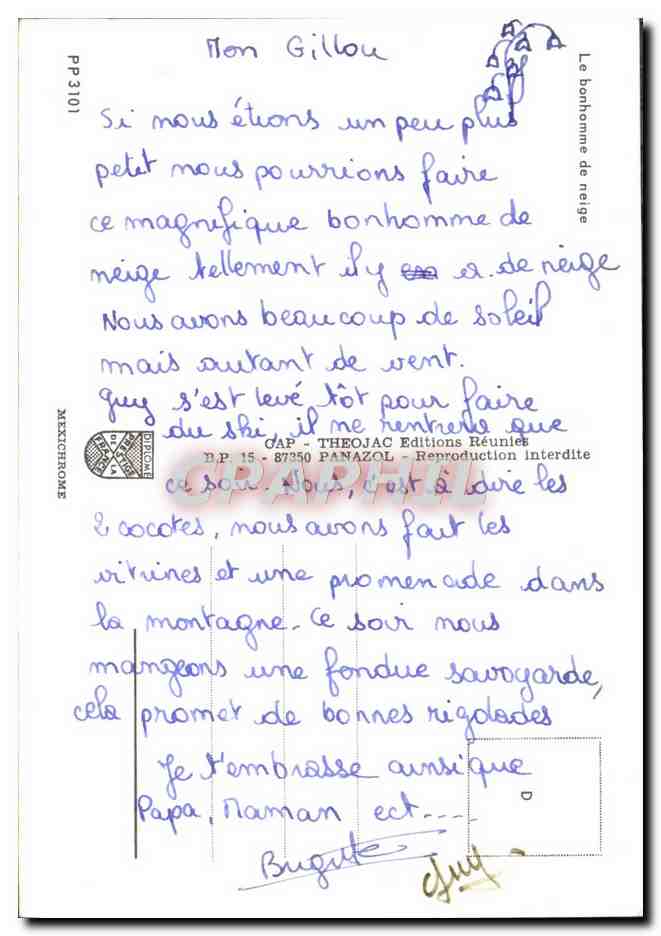 Mon Gillou
PP3101
Le bonhomme de neige
Si nous étions un peu plus
petit nous pourrions faire
ce magnifique bonhomme de
neige tellement il y a de neige
Nous avons beaucoup de soleil
mais autant de vent.
Guy s'est levé tôt pour faire
du ski, il ne rentrera que
CAP - THEOJAC Editions Réunies
B.P. 15 - 87350 PANAZOL - Reproduction interdite
MEXICHROME
DIPLOME
PRESTIGE
DE LA
FRANCE
CPAPHIL
ce soir. Nous, c'est à dire les
2 cocotes, nous avons fait les
vitrines et une promenade dans
la montagne. Ce soir nous
mangeons une fondue savoyarde,
cela promet de bonnes rigolades
Je t'embrasse ainsi que
Papa, Maman ect....
D
Brigitte
Guy